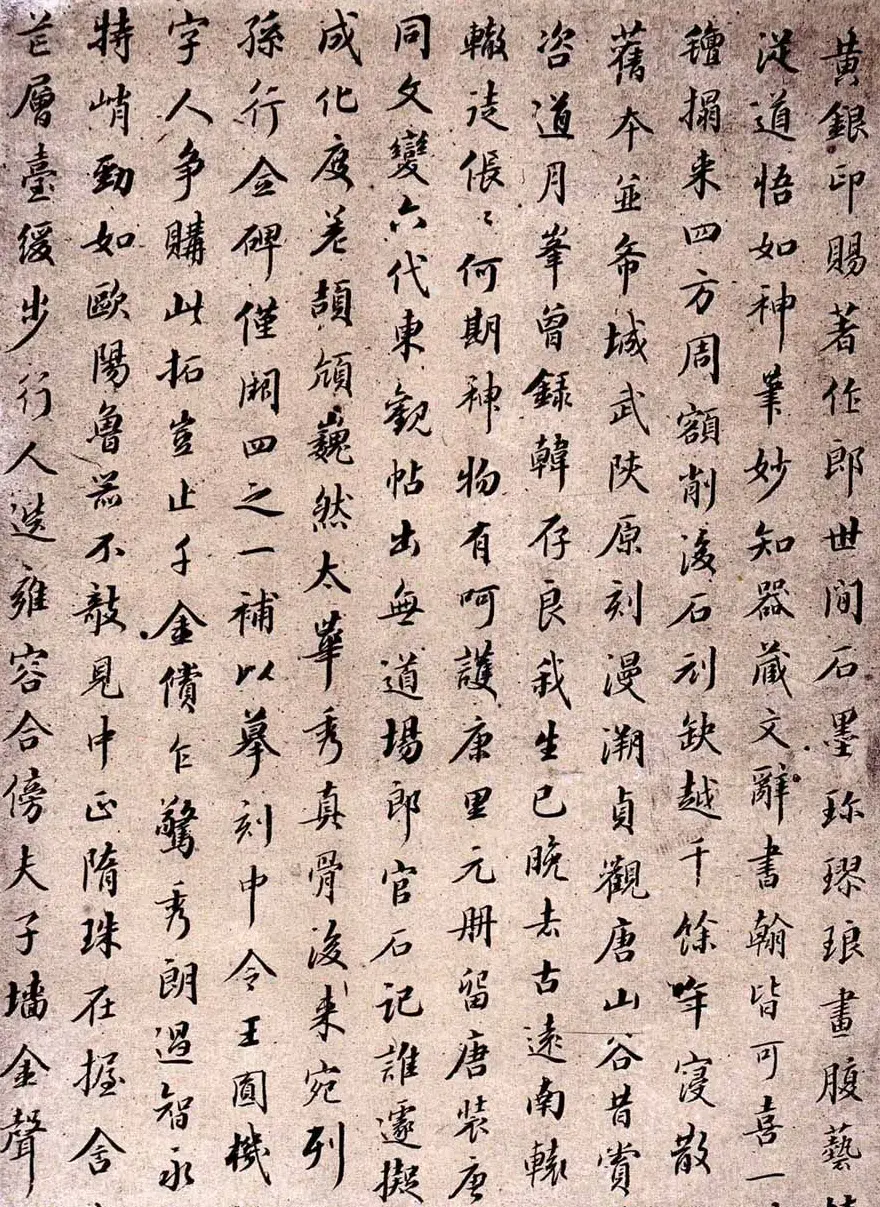 黃銀印賜著作郎世間石墨珎璆琅畫腹藝
從道悟如神筆妙知器藏文辭書翰皆可喜一
搨来四方周額削後石刓缺越千餘年寖散
舊本並希城武陝原刻漫溯貞觀唐山谷昔賞
咨道月峯曾錄韓存良我生已晚去古遠南轅
轍徒倀〻何期神物有呵護康里元冊留唐裝唐
同文變六代東觀帖出無道場郎官石記誰遽擬
成化度差頡頏巍然太華秀真骨後来宛列
孫行全碑僅闕四之一補以摹刻中令王圓機
字人争購此拓豈止千金償乍驚秀朗過智永
特峭勁如歐陽魯器不敧見中正隋珠在握含
芒層臺緩步行人雍容合傍夫子墻金聲